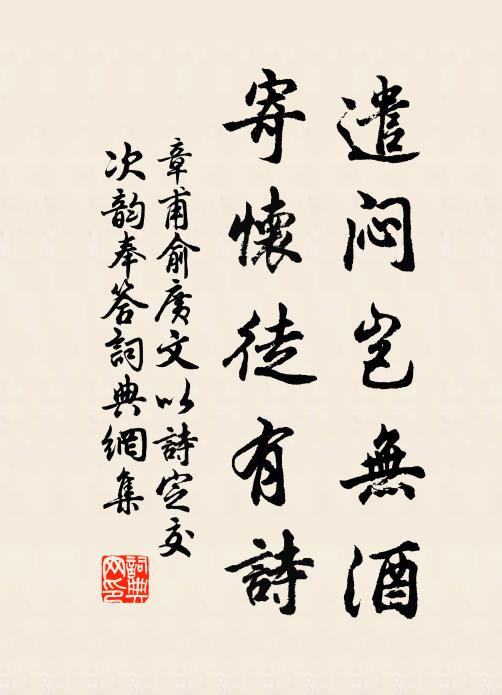 遣闷岂無酒
寄懷徒有詩
章甫俞廣文以詩定交
次韵奉答詞典網集
詞典
网印